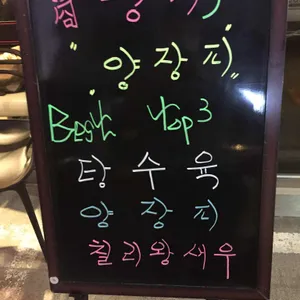 "양장피"
Best Top3
탕수육
양장피
칠리왕새우